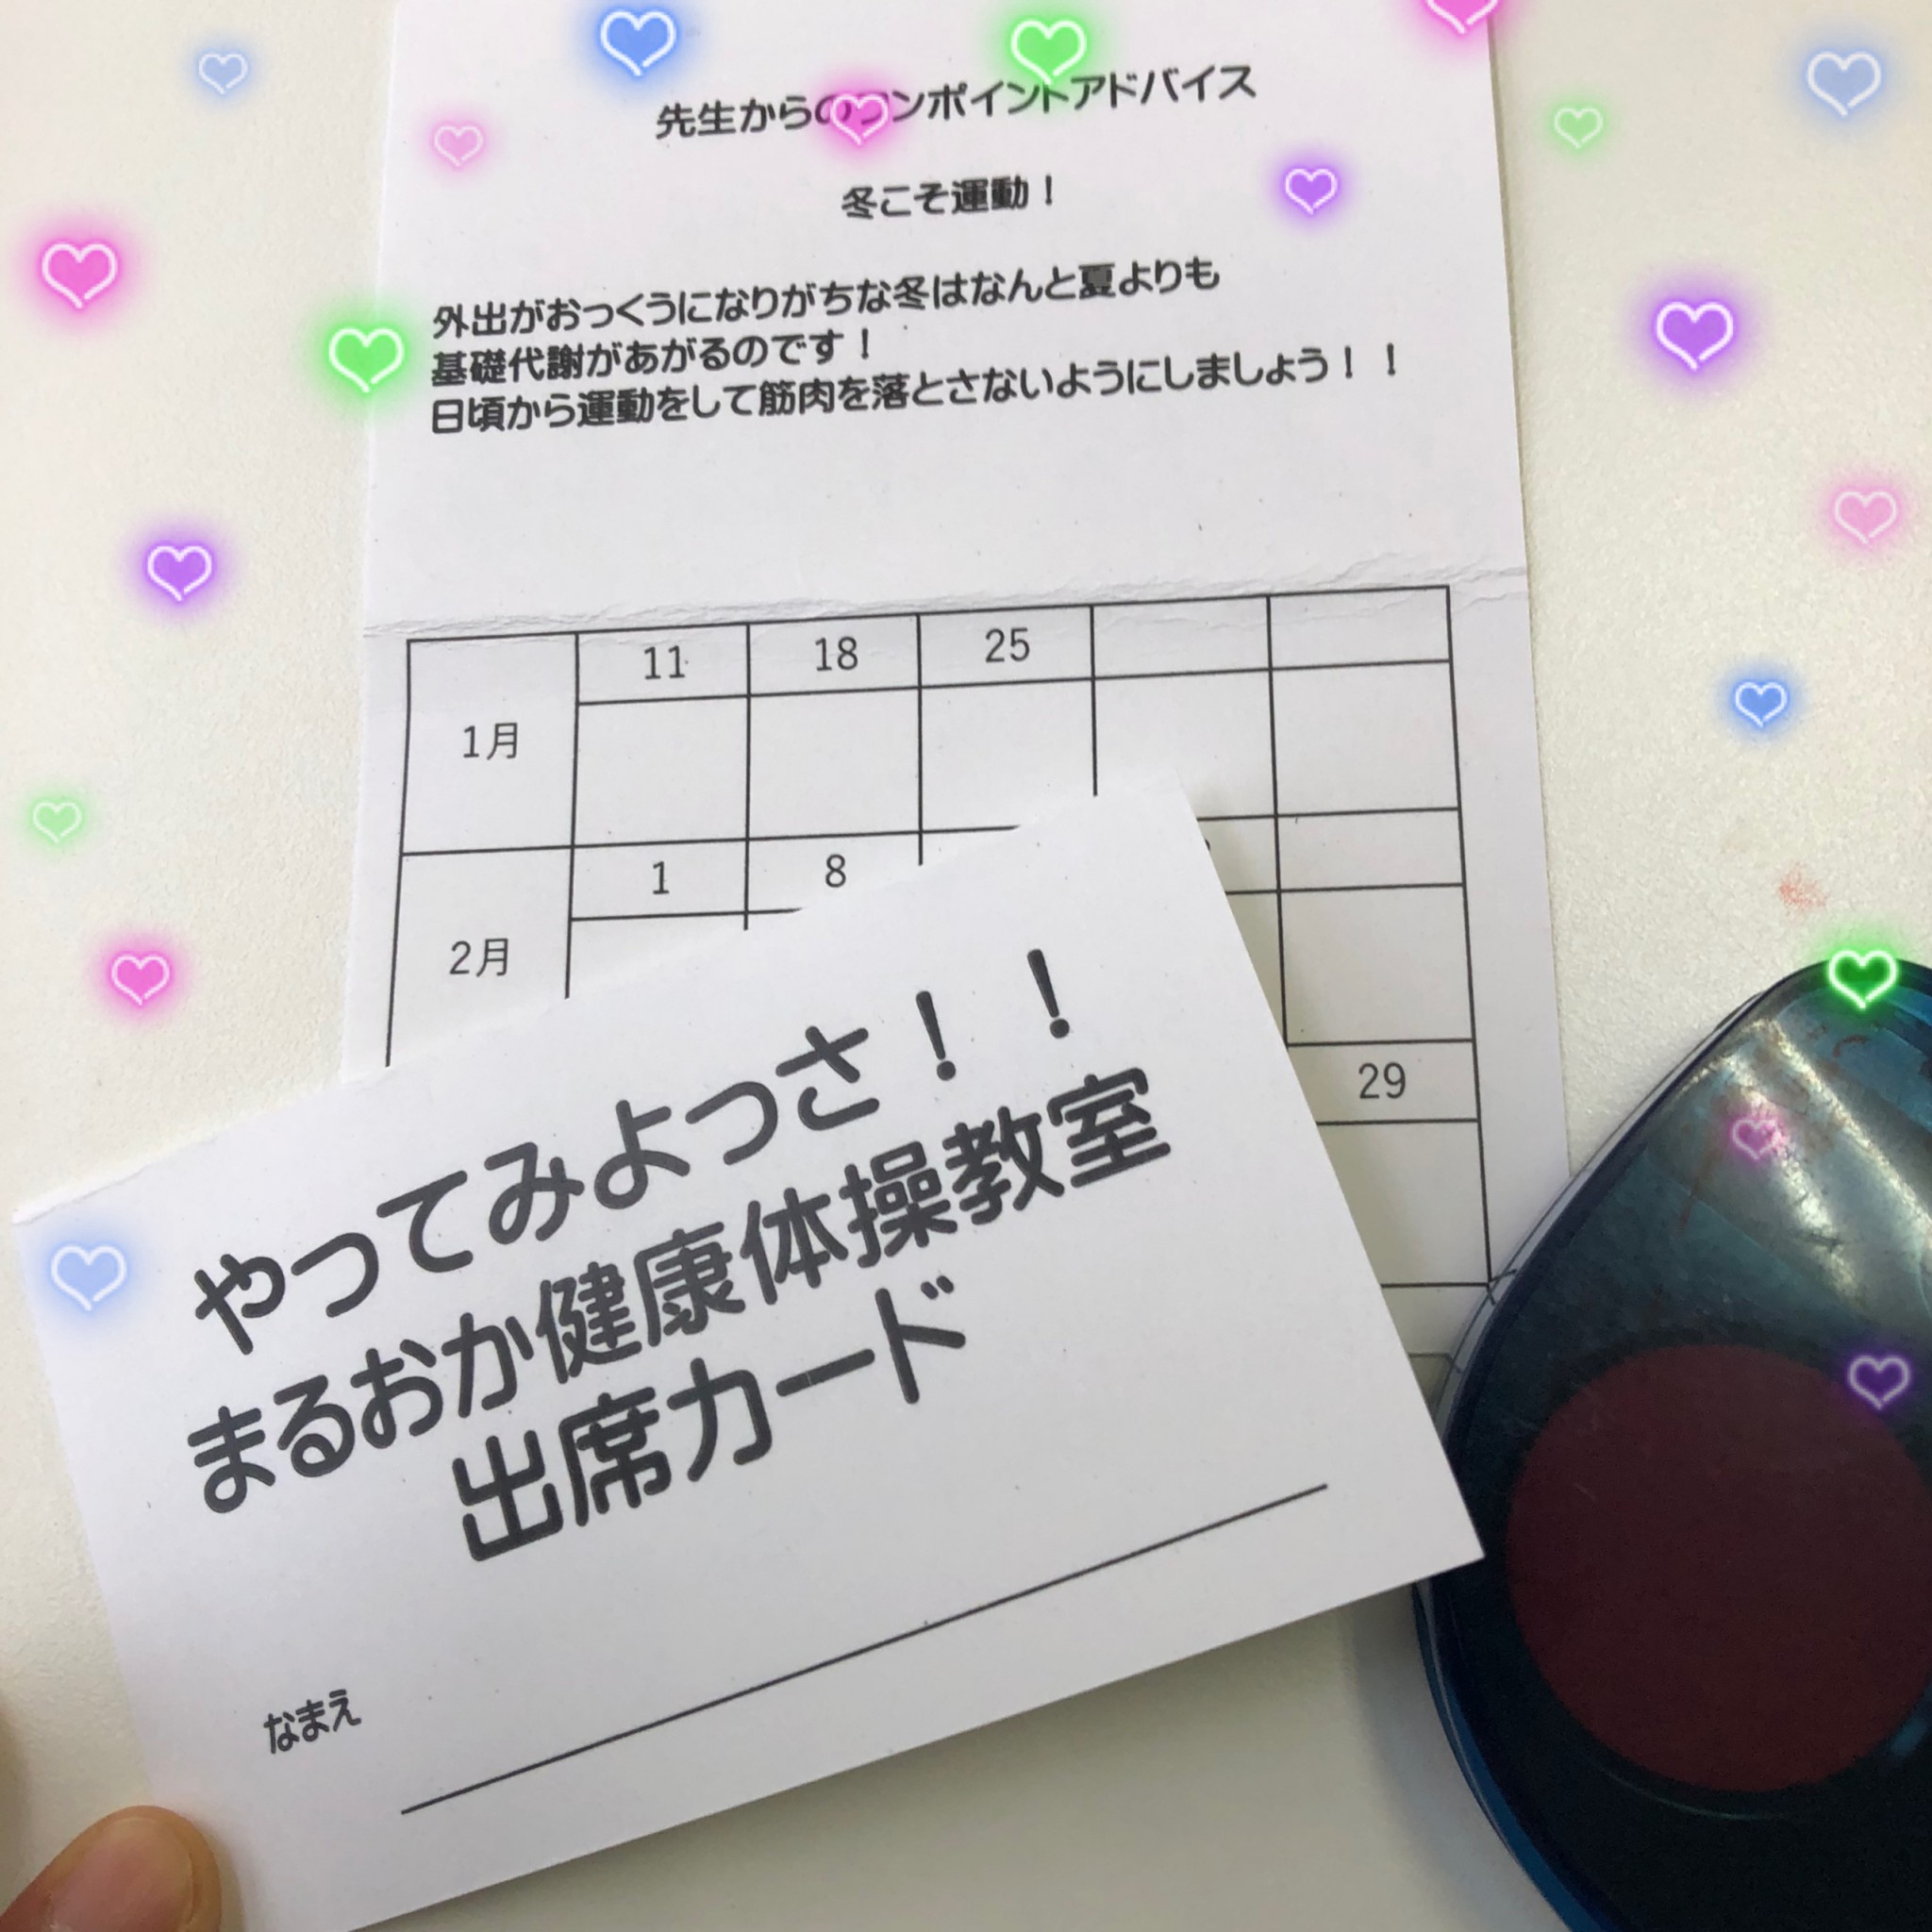 先生からのワンポイントアドバイス
冬こそ運動！
外出がおっくうになりがちな冬はなんと夏よりも
基礎代謝があがるのです！
日頃から運動をして筋肉を落とさないようにしましょう！！
11 18 25
1月
1 8
2月
29
やってみよっさ！！
まるおか健康体操教室
出席カード
なまえ